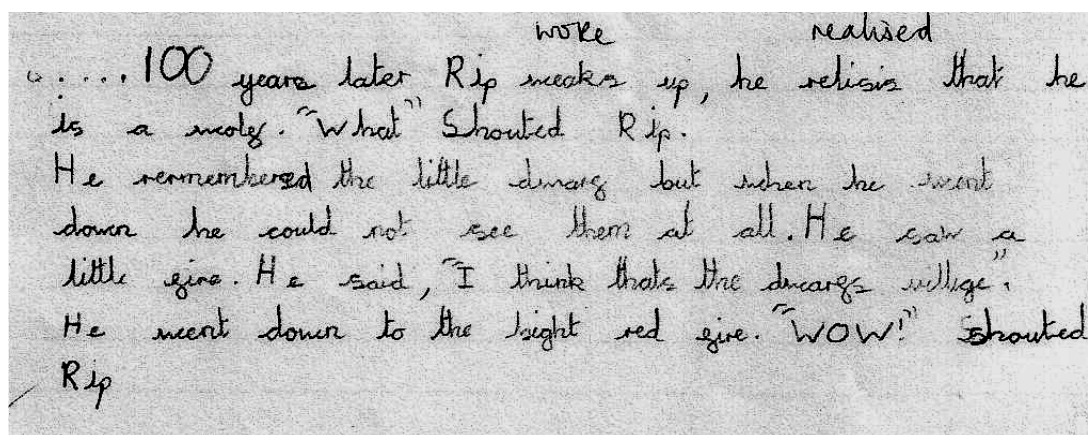 woke realised
.....100 years later Rip weaks up, he relisis that he
is a wolf. "What" Shouted Rip.
He rermembered the little dwarf but when he went
down he could not see them at all. He saw a
little fire. He said, "I think thats the dwarfs villige".
He went down to the bight red fire. "WOW!" Shouted
Rip